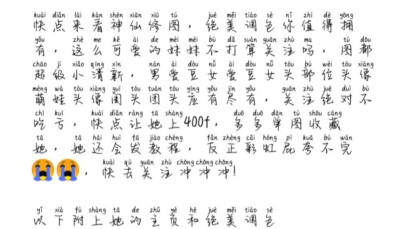 kuài diǎn lái kàn shén xiān xiū tú jué měi tiáo sè nǐ zhí dé yōng
快点来看神仙修图,绝美调色你值得拥
yǒu zhè me kě ài de mèi mei bù dǎ suàn guān zhù ma tú dōu
有,这么可爱的妹妹不打算关注吗,图都
chāo jí xiǎo qīng xīn nán ài dòu nǚ ài dòu nǚ tóu bù wèi tóu xiàng
超级小清新,男爱豆女爱豆女头部位头像
méng wá tóu xiàng guī tóu tuán tóu yīng yǒu jìn yǒu guān zhù jué duì bù
萌娃头像闺头团头应有尽有,关注绝对不
chī kuī kuài diǎn ràng tā shàng duō duō dān tú shōu cáng
吃亏,快点让她上400f,多多单图收藏
tā tā hái huì fā jiào chéng fǎn zhèng cǎi hóng pì kuā bù wán
她,她还会发教程,反正彩虹屁夸不完
kuài qù guān zhù chōng chōng chōng
😭😭,快去关注冲冲冲!
yǐ xià fù shàng tā de zhǔ yè hé jué měi tiáo sè
以下附上她的主页和绝美调色